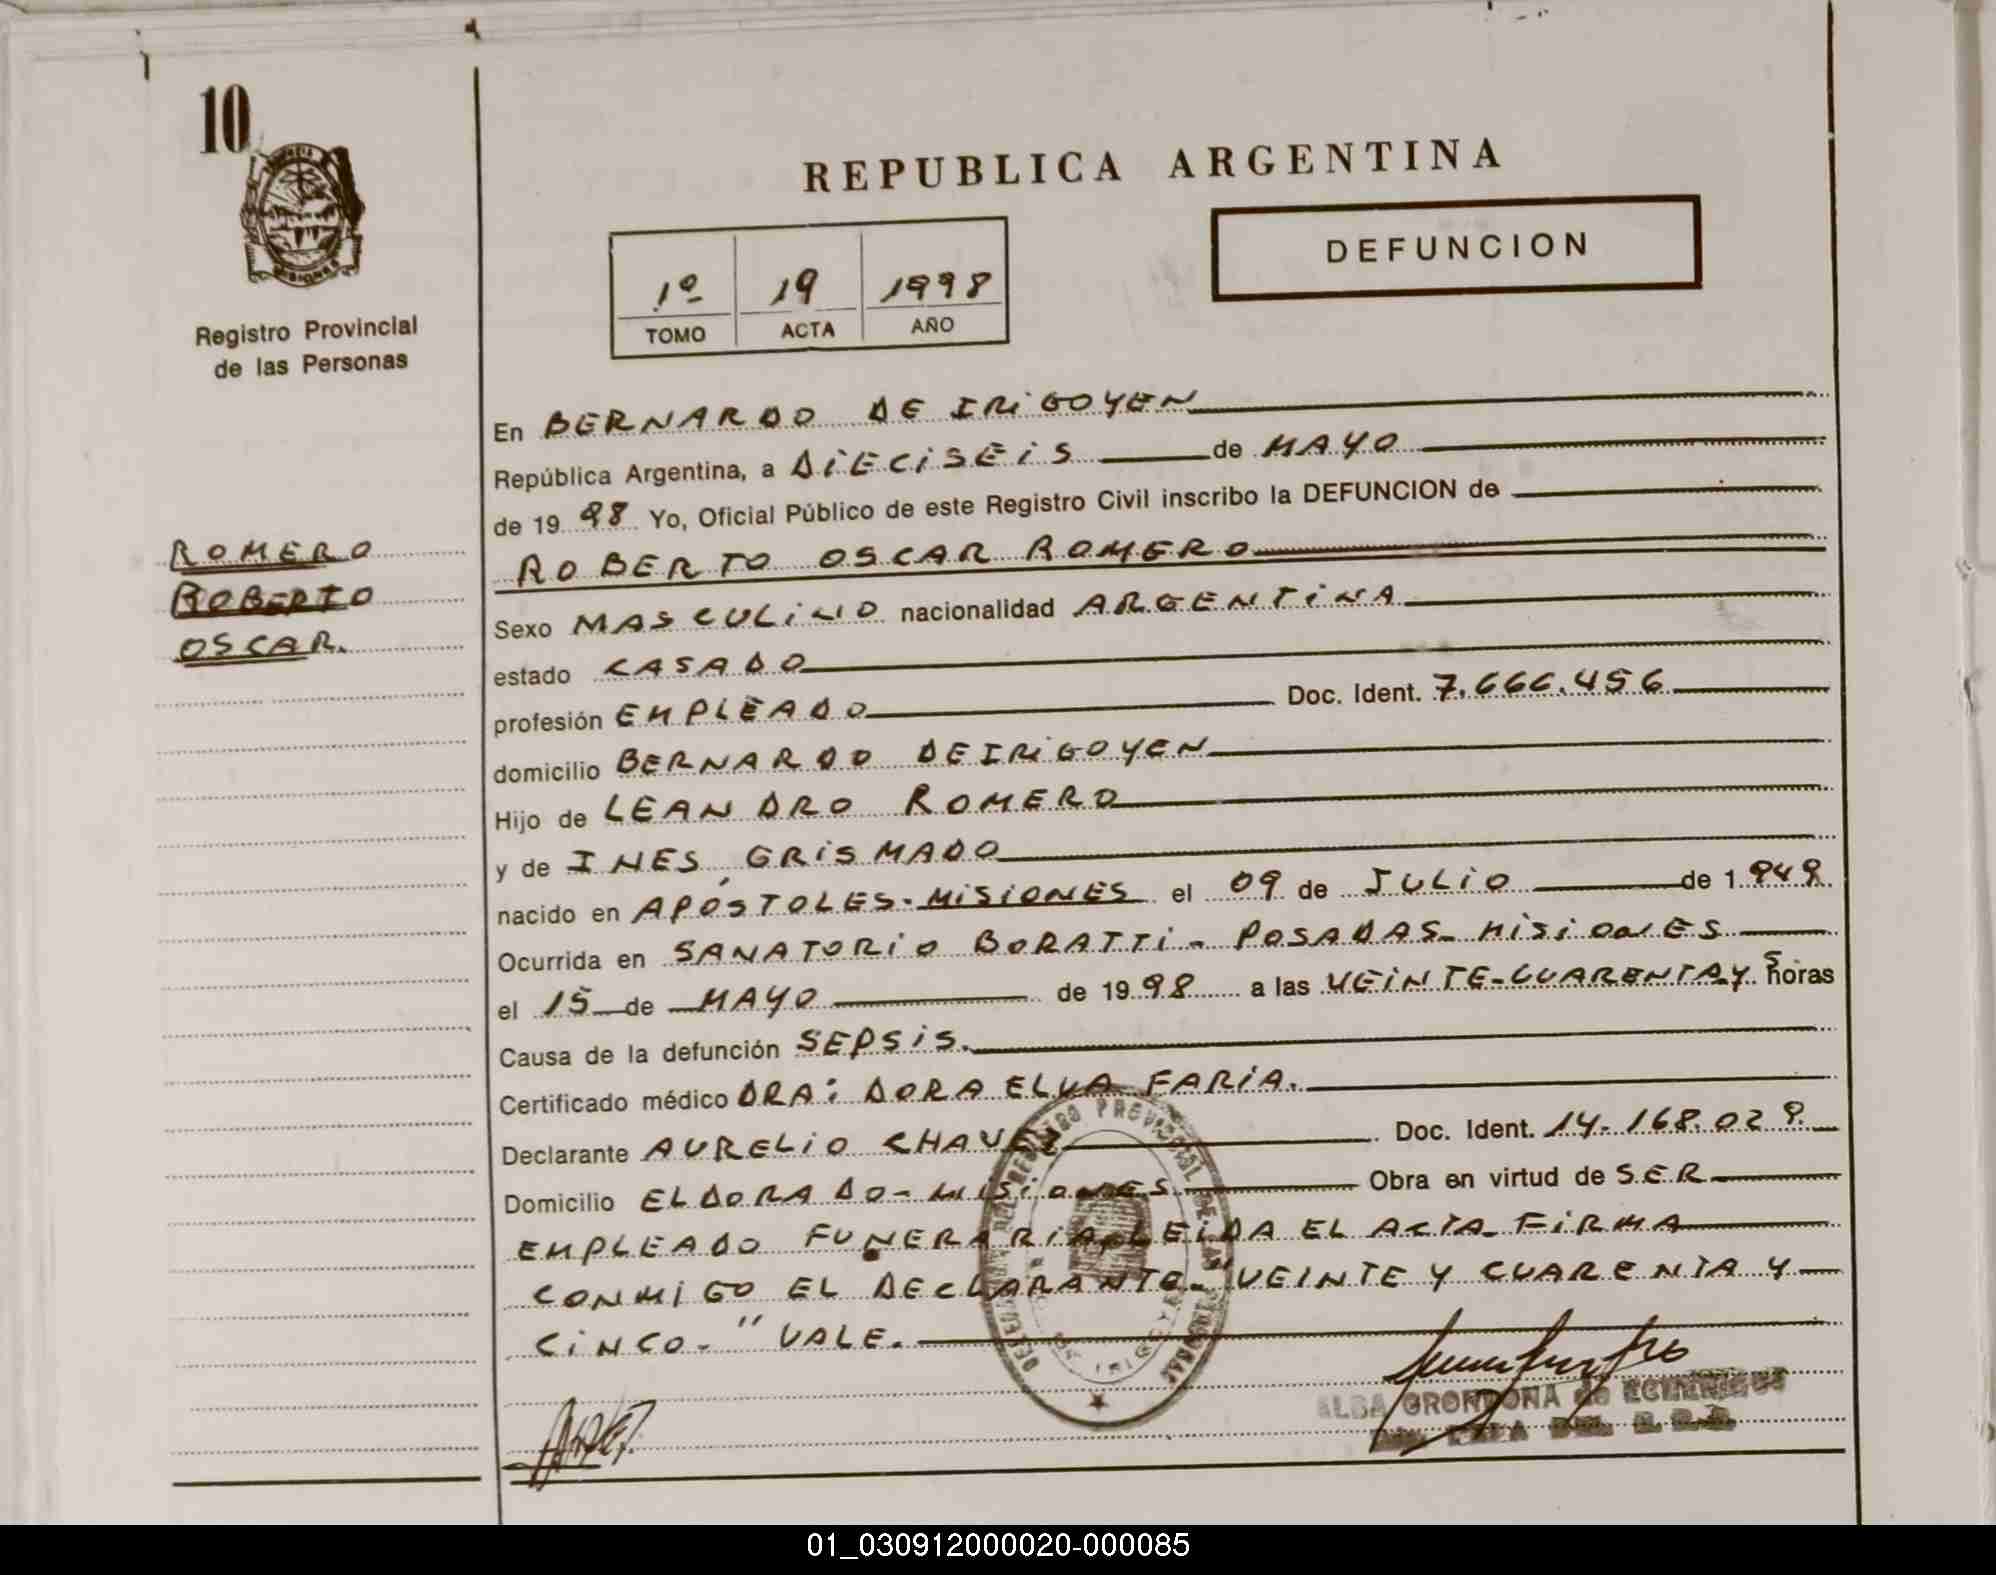 10
MISIONES
Registro Provincial
de las Personas
ROMERO
ROBERTO
OSCAR.
REPUBLICA ARGENTINA
1º 19 1998
TOMO ACTA AÑO
DEFUNCION
En BERNARDO DE IRIGOYEN
República Argentina, a DIECISEIS de MAYO
de 19 98 Yo, Oficial Público de este Registro Civil inscribo la DEFUNCION de
ROBERTO OSCAR ROMERO
Sexo MASCULINO nacionalidad ARGENTINA
estado CASADO
profesión EMPLEADO Doc. Ident. 7.666.456
domicilio BERNARDO DE IRIGOYEN
Hijo de LEANDRO ROMERO
y de INES GRISMADO
nacido en APÓSTOLES-MISIONES el 09 de JULIO de 1.949
Ocurrida en SANATORIO BORATTI- POSADAS- MISIONES
el 15 de MAYO de 19 98 a las VEINTE-CUARENTA Y 5 horas
Causa de la defunción SEPSIS.
Certificado médico DRA: DORA ELVA FARIA.
Declarante AURELIO CHAVEZ Doc. Ident. 14.168.029.
Domicilio ELDORADO-MISIONES Obra en virtud de SER
EMPLEADO FUNERARIA. LEIDA EL ACTA FIRMA
CONMIGO EL DECLARANTE-"VEINTE Y CUARENTA Y
CINCO-" VALE.
ALBA GRONDONA de
01_030912000020-000085